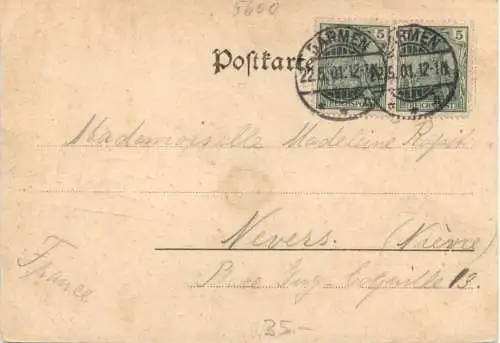 5600
5 5
BARMEN BARMEN
Postkarte
22.5.01.12-1N. 22.5.01.12-1N.
REICHSPOST REICHSPOST
Mademoiselle Madeleine
Nevers. (Nièvre)
France
Rue 13.
25.-